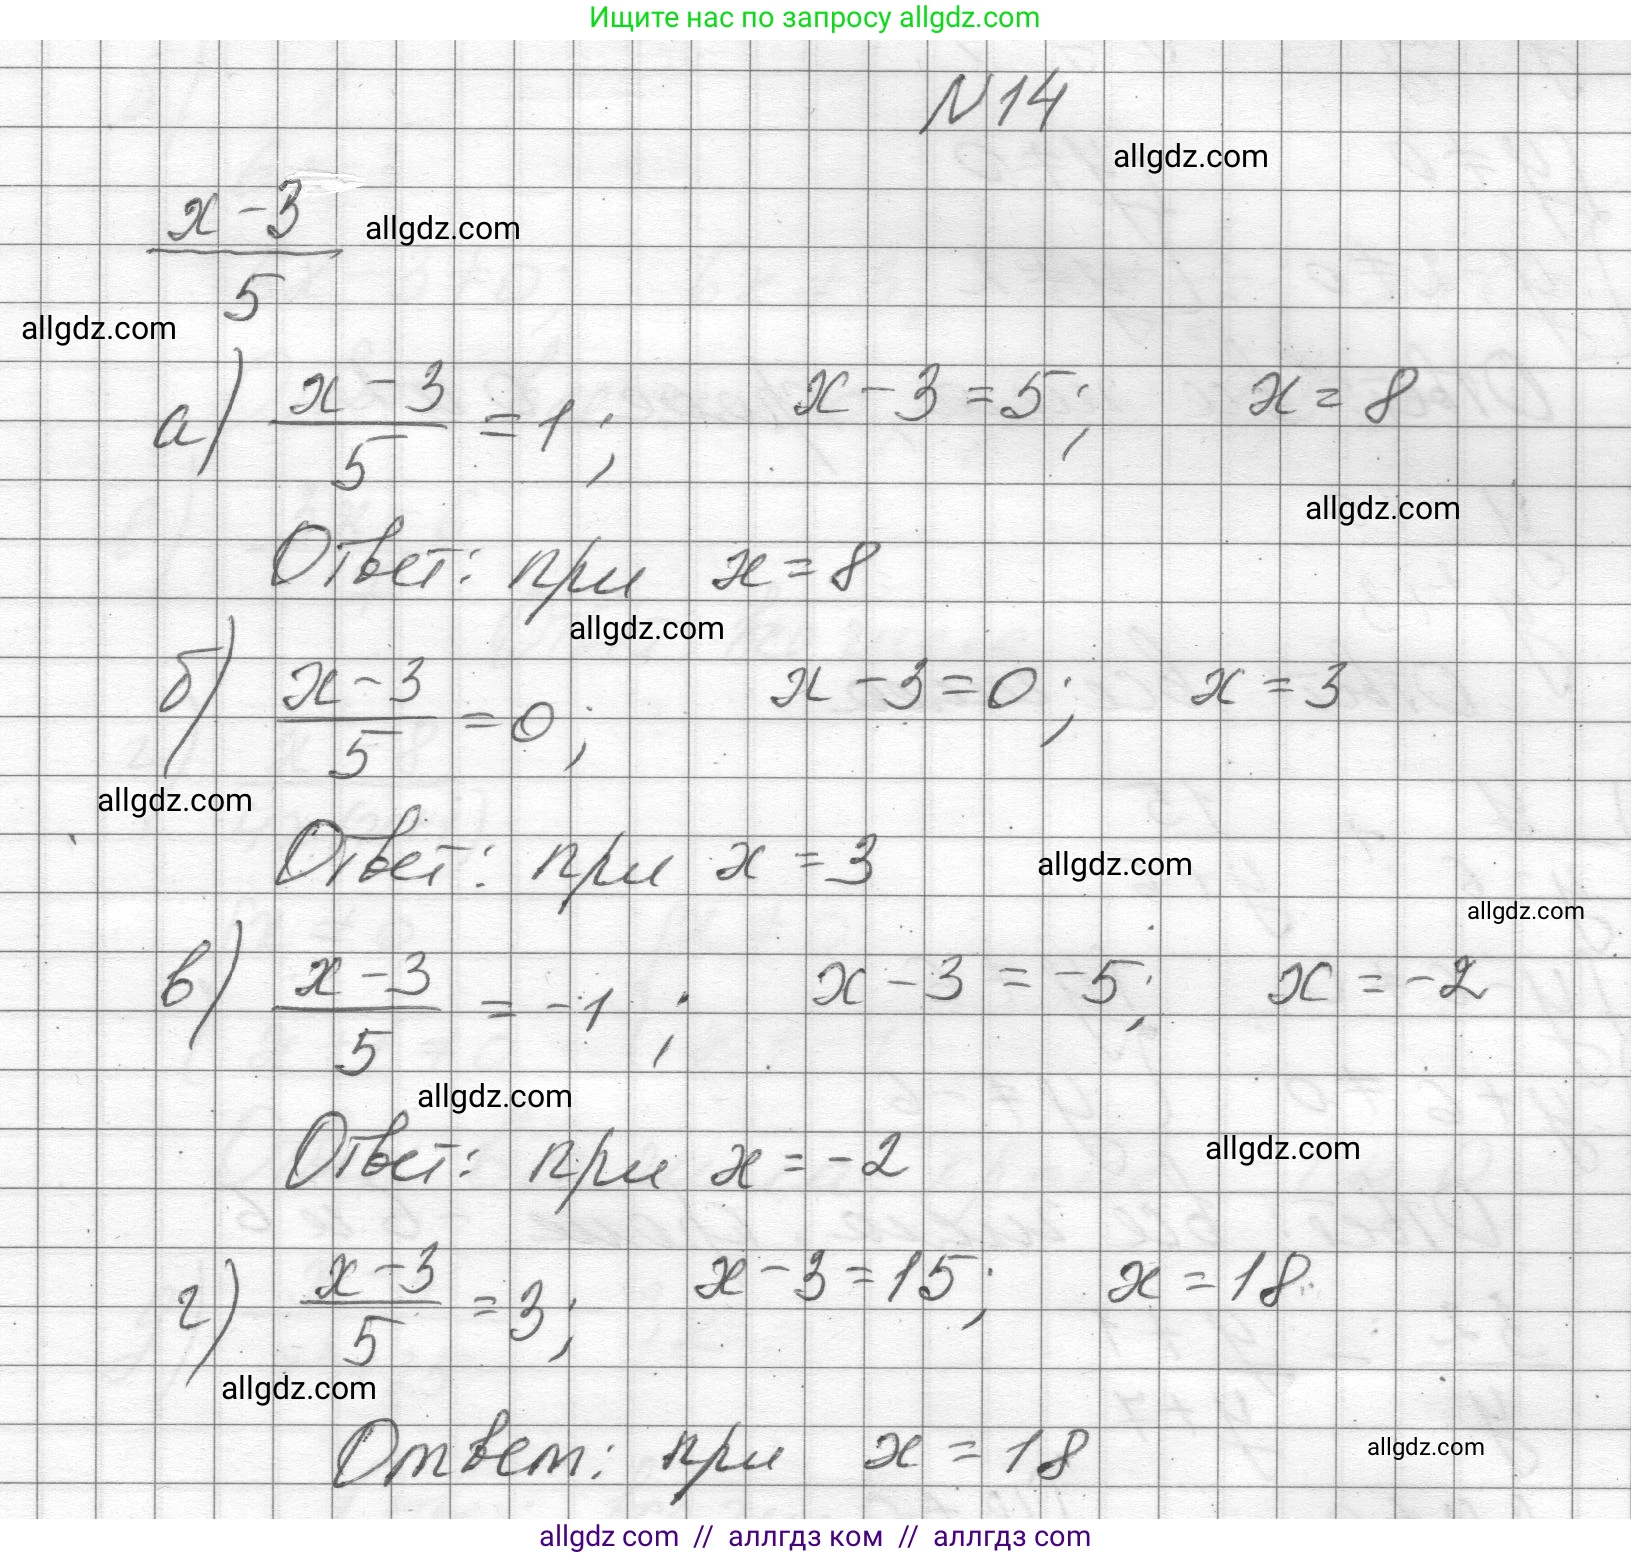 Ищите нас по запросу allgdz.com
N14
allgdz.com
x - 3
allgdz.com
5
allgdz.com
а) x - 3 / 5 = 1; x - 3 = 5; x = 8
allgdz.com
Ответ: при x = 8
allgdz.com
б) x - 3 / 5 = 0; x - 3 = 0; x = 3
allgdz.com
Ответ: при x = 3
allgdz.com
allgdz.com
в) x - 3 / 5 = -1; x - 3 = -5; x = -2
allgdz.com
Ответ: при x = -2
allgdz.com
г) x - 3 / 5 = 3; x - 3 = 15; x = 18
allgdz.com
Ответ: при x = 18
allgdz.com
allgdz com // аллгдз ком // аллгдз com